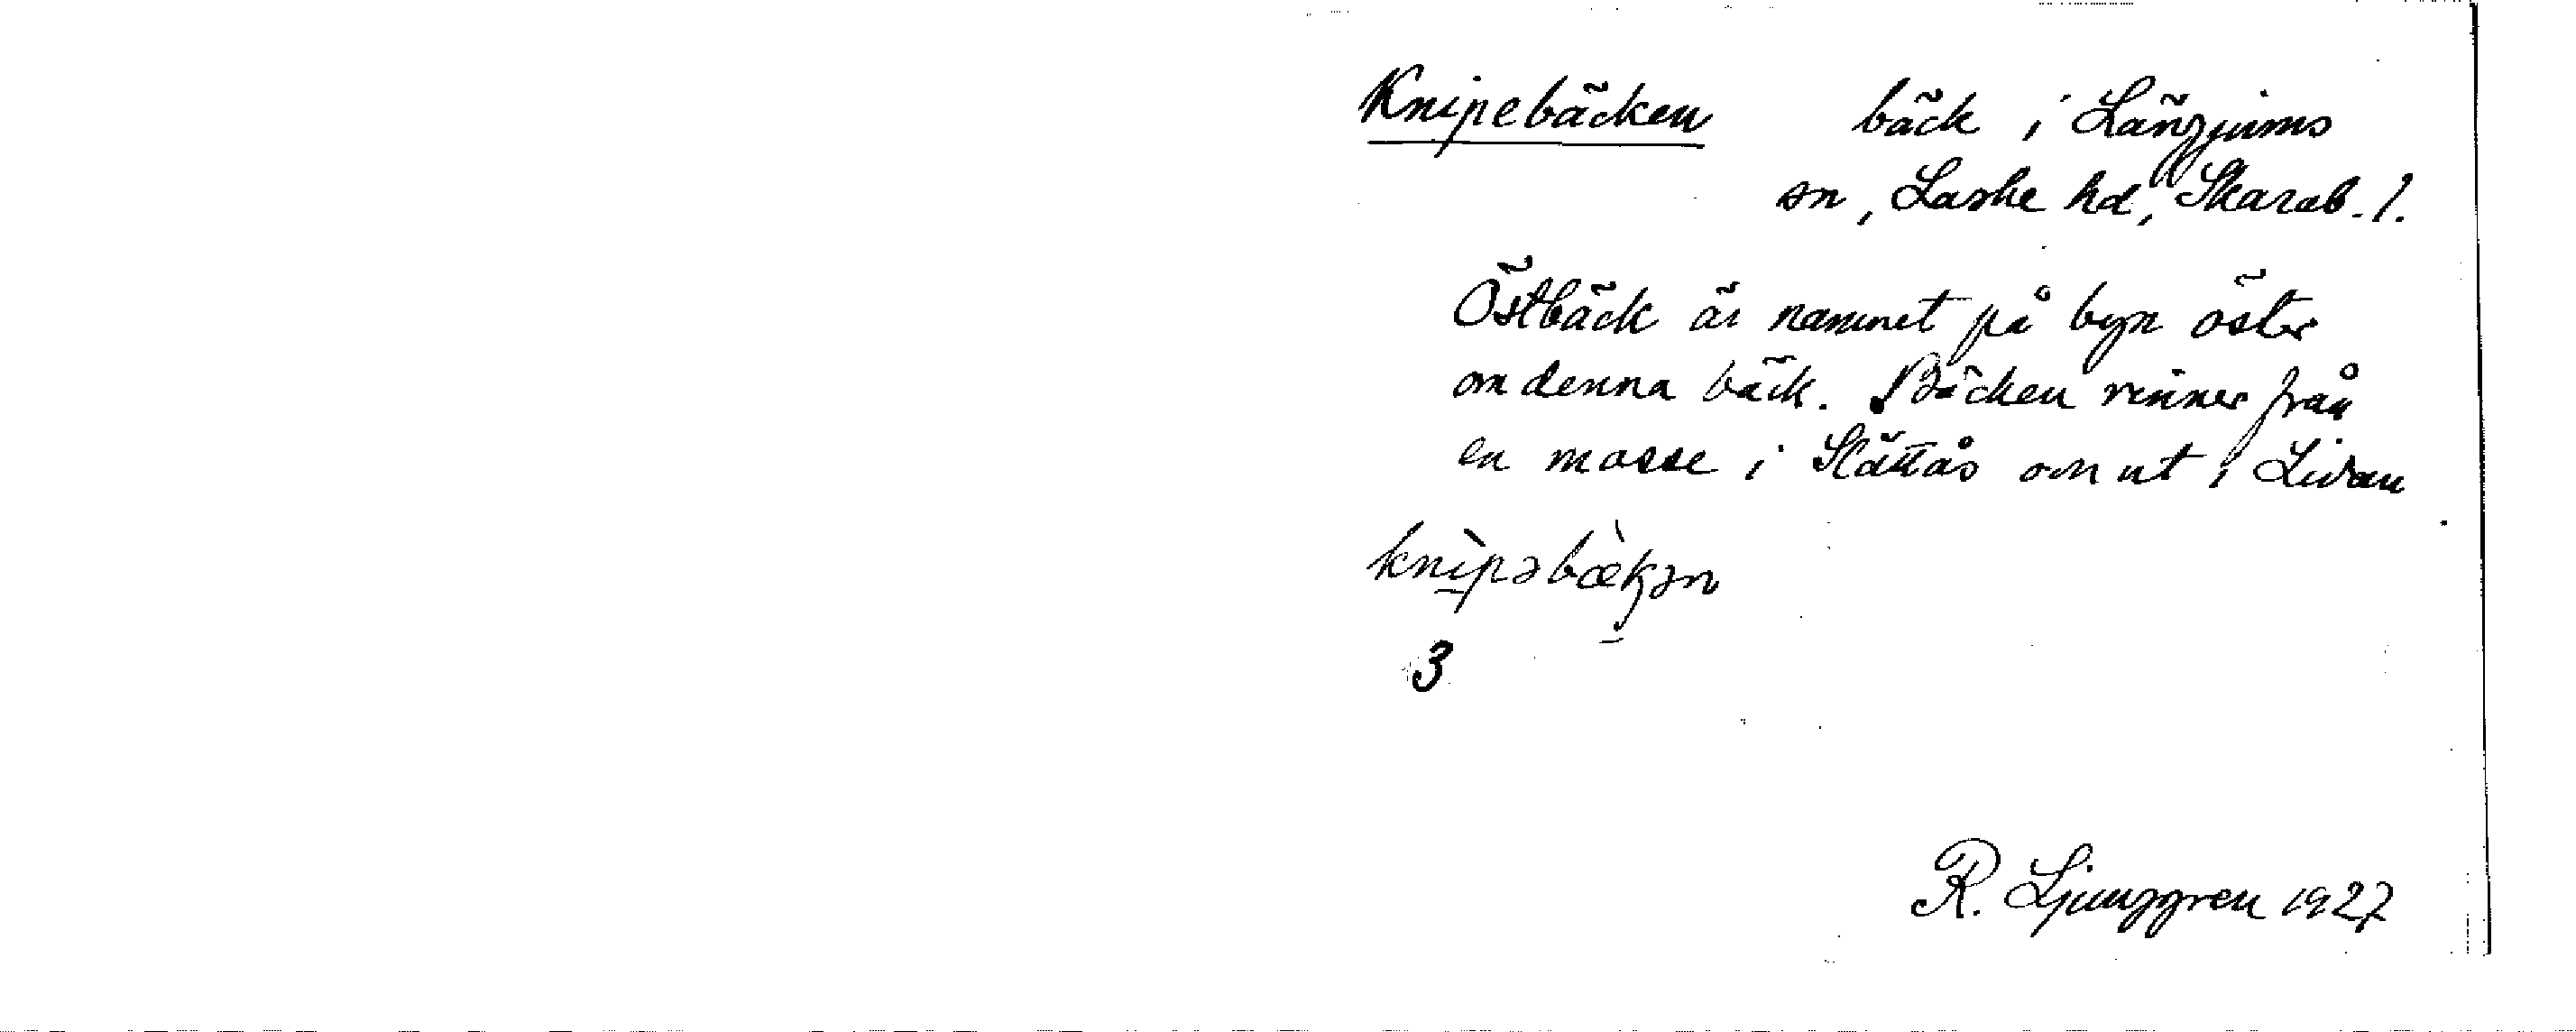 Knipebäcken bäck i Längjums
sn, Laske hd, Skarab. l.
Östbäck är namnet på byn öster
om denna bäck. Bäcken rinner från
en mosse i Slättås o ut i Lidan
knìpəbæ̀kən
3
R. Ljunggren 1927